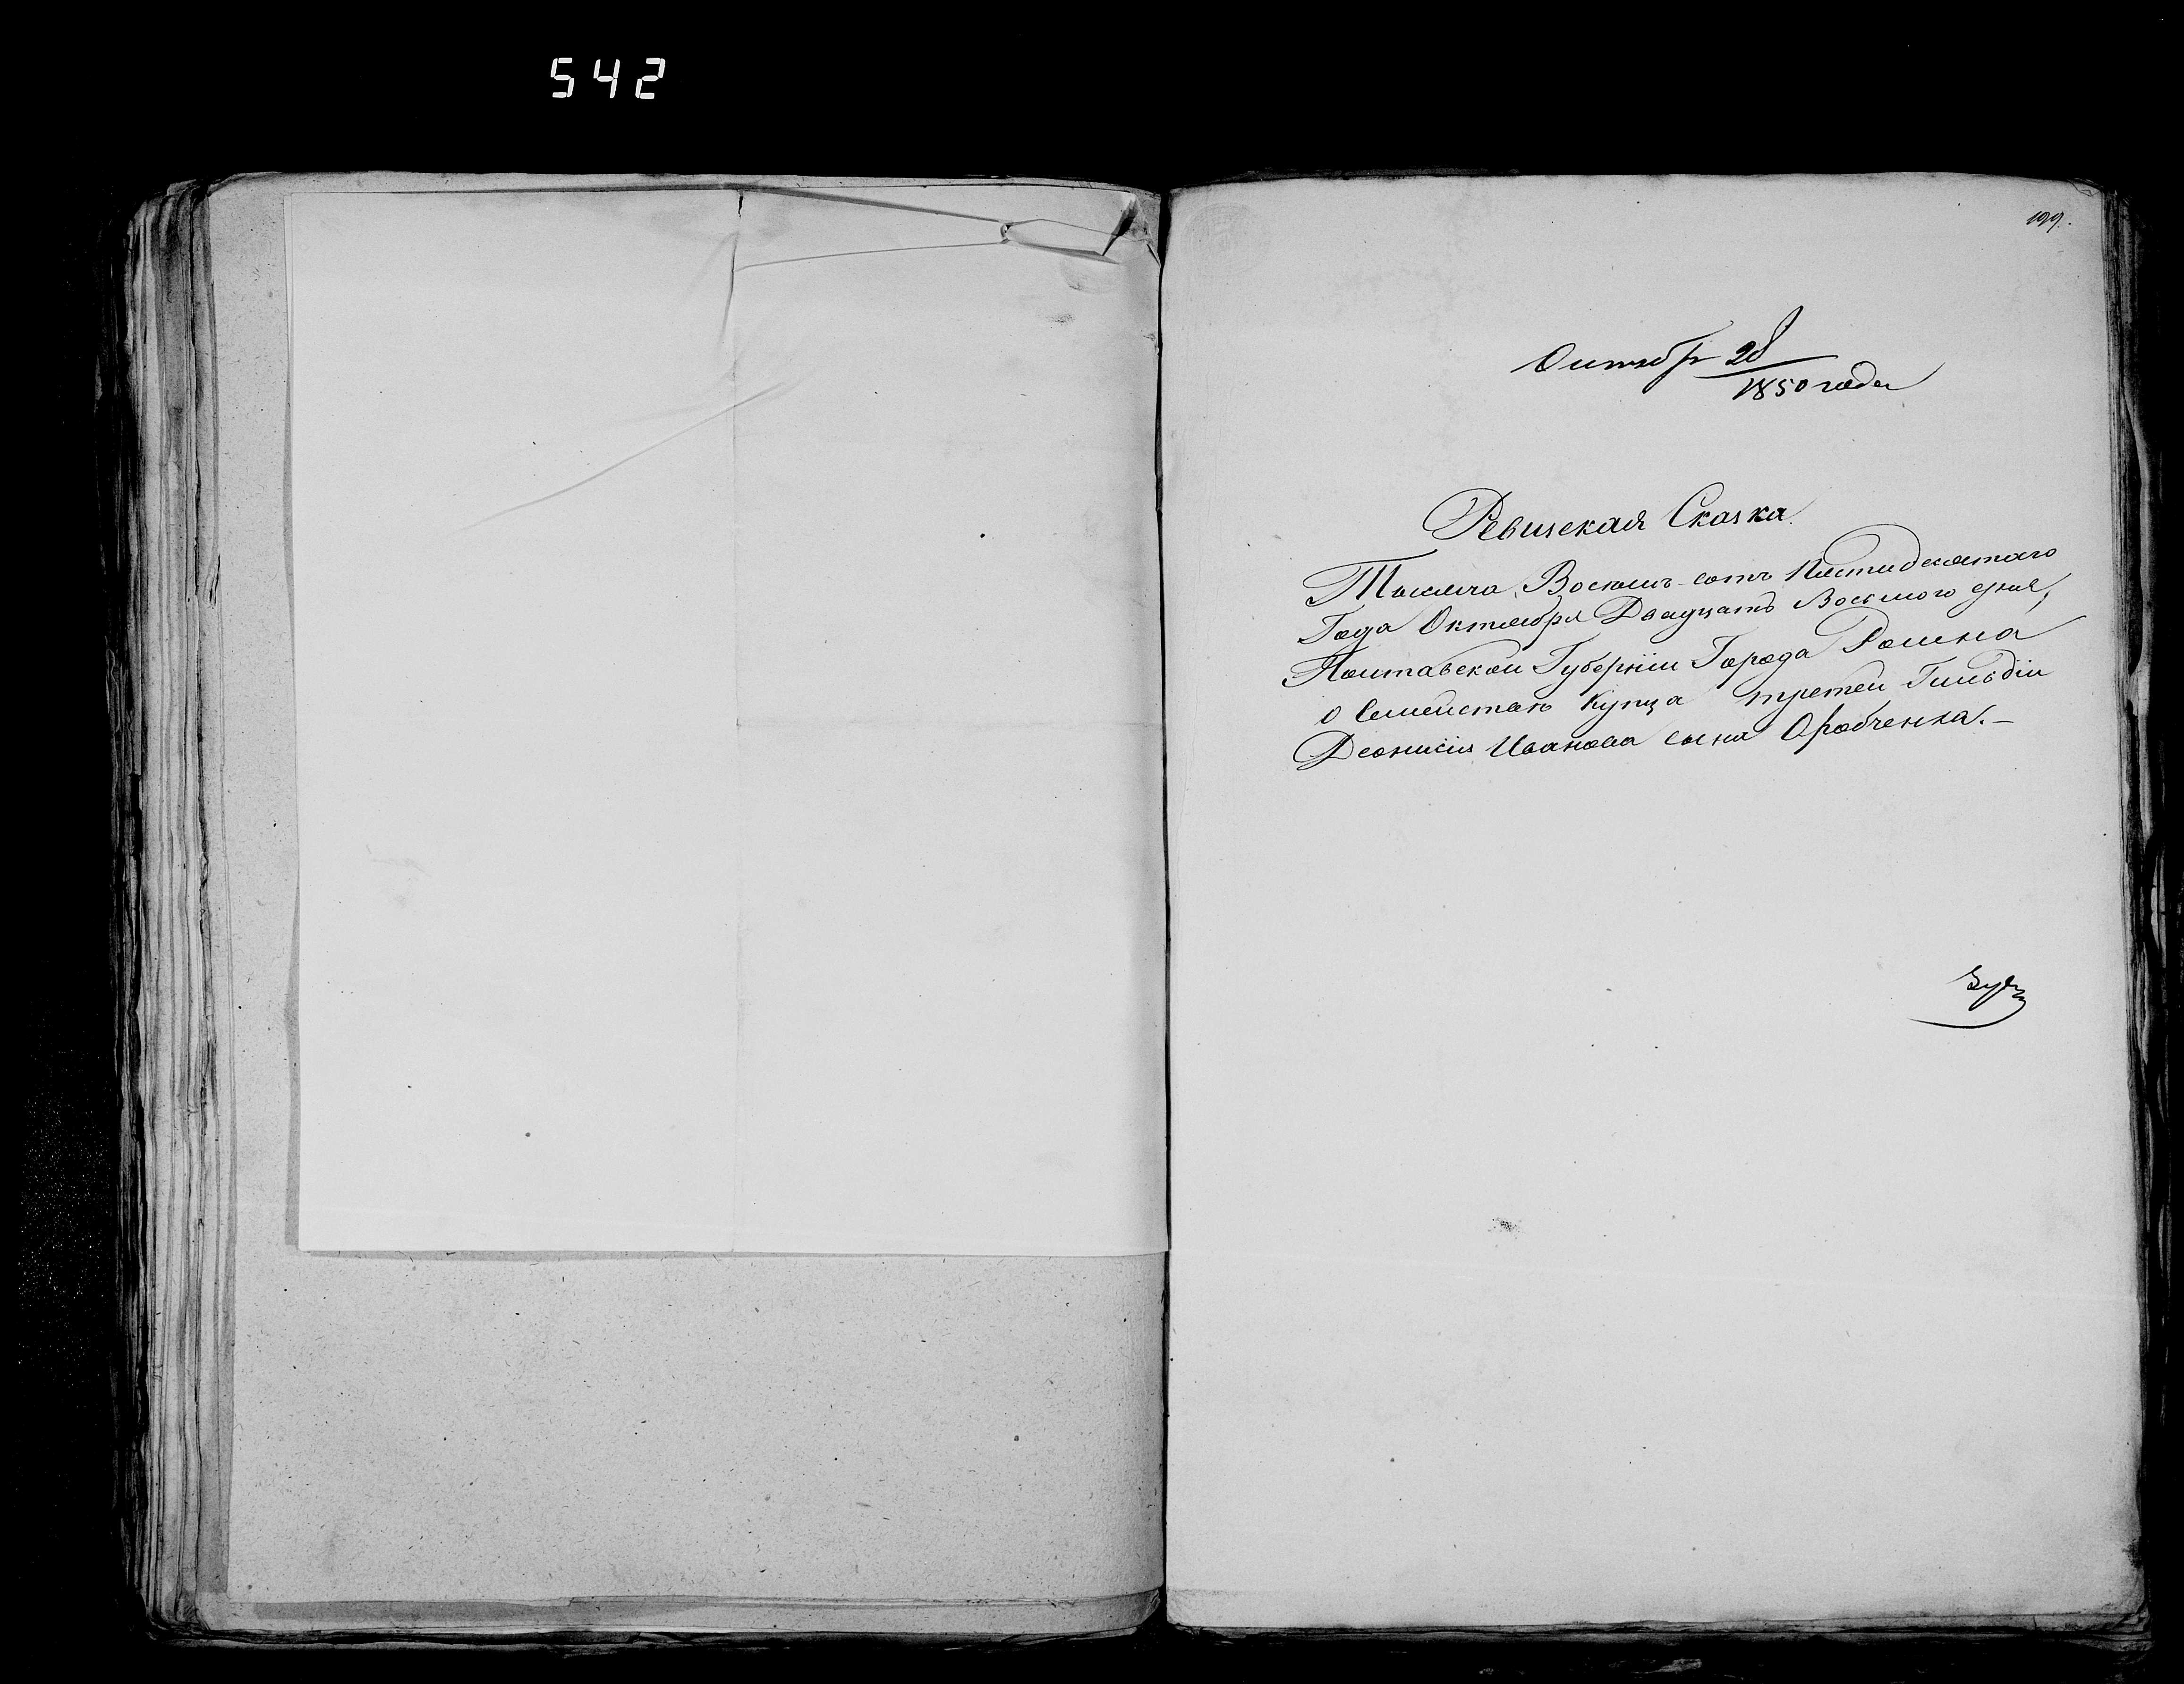 542
199.
Октября 28
1850 года
Ревизская Сказка.
Тысяча Восемь-сотъ Пятидесятаго
Года Октября Двадцать Восьмого дня,
Полтавской Губерніи Города Ромна
о Семействѣ Купца третей Гильдіи
Деонисія Иванова сына Оробченка.-